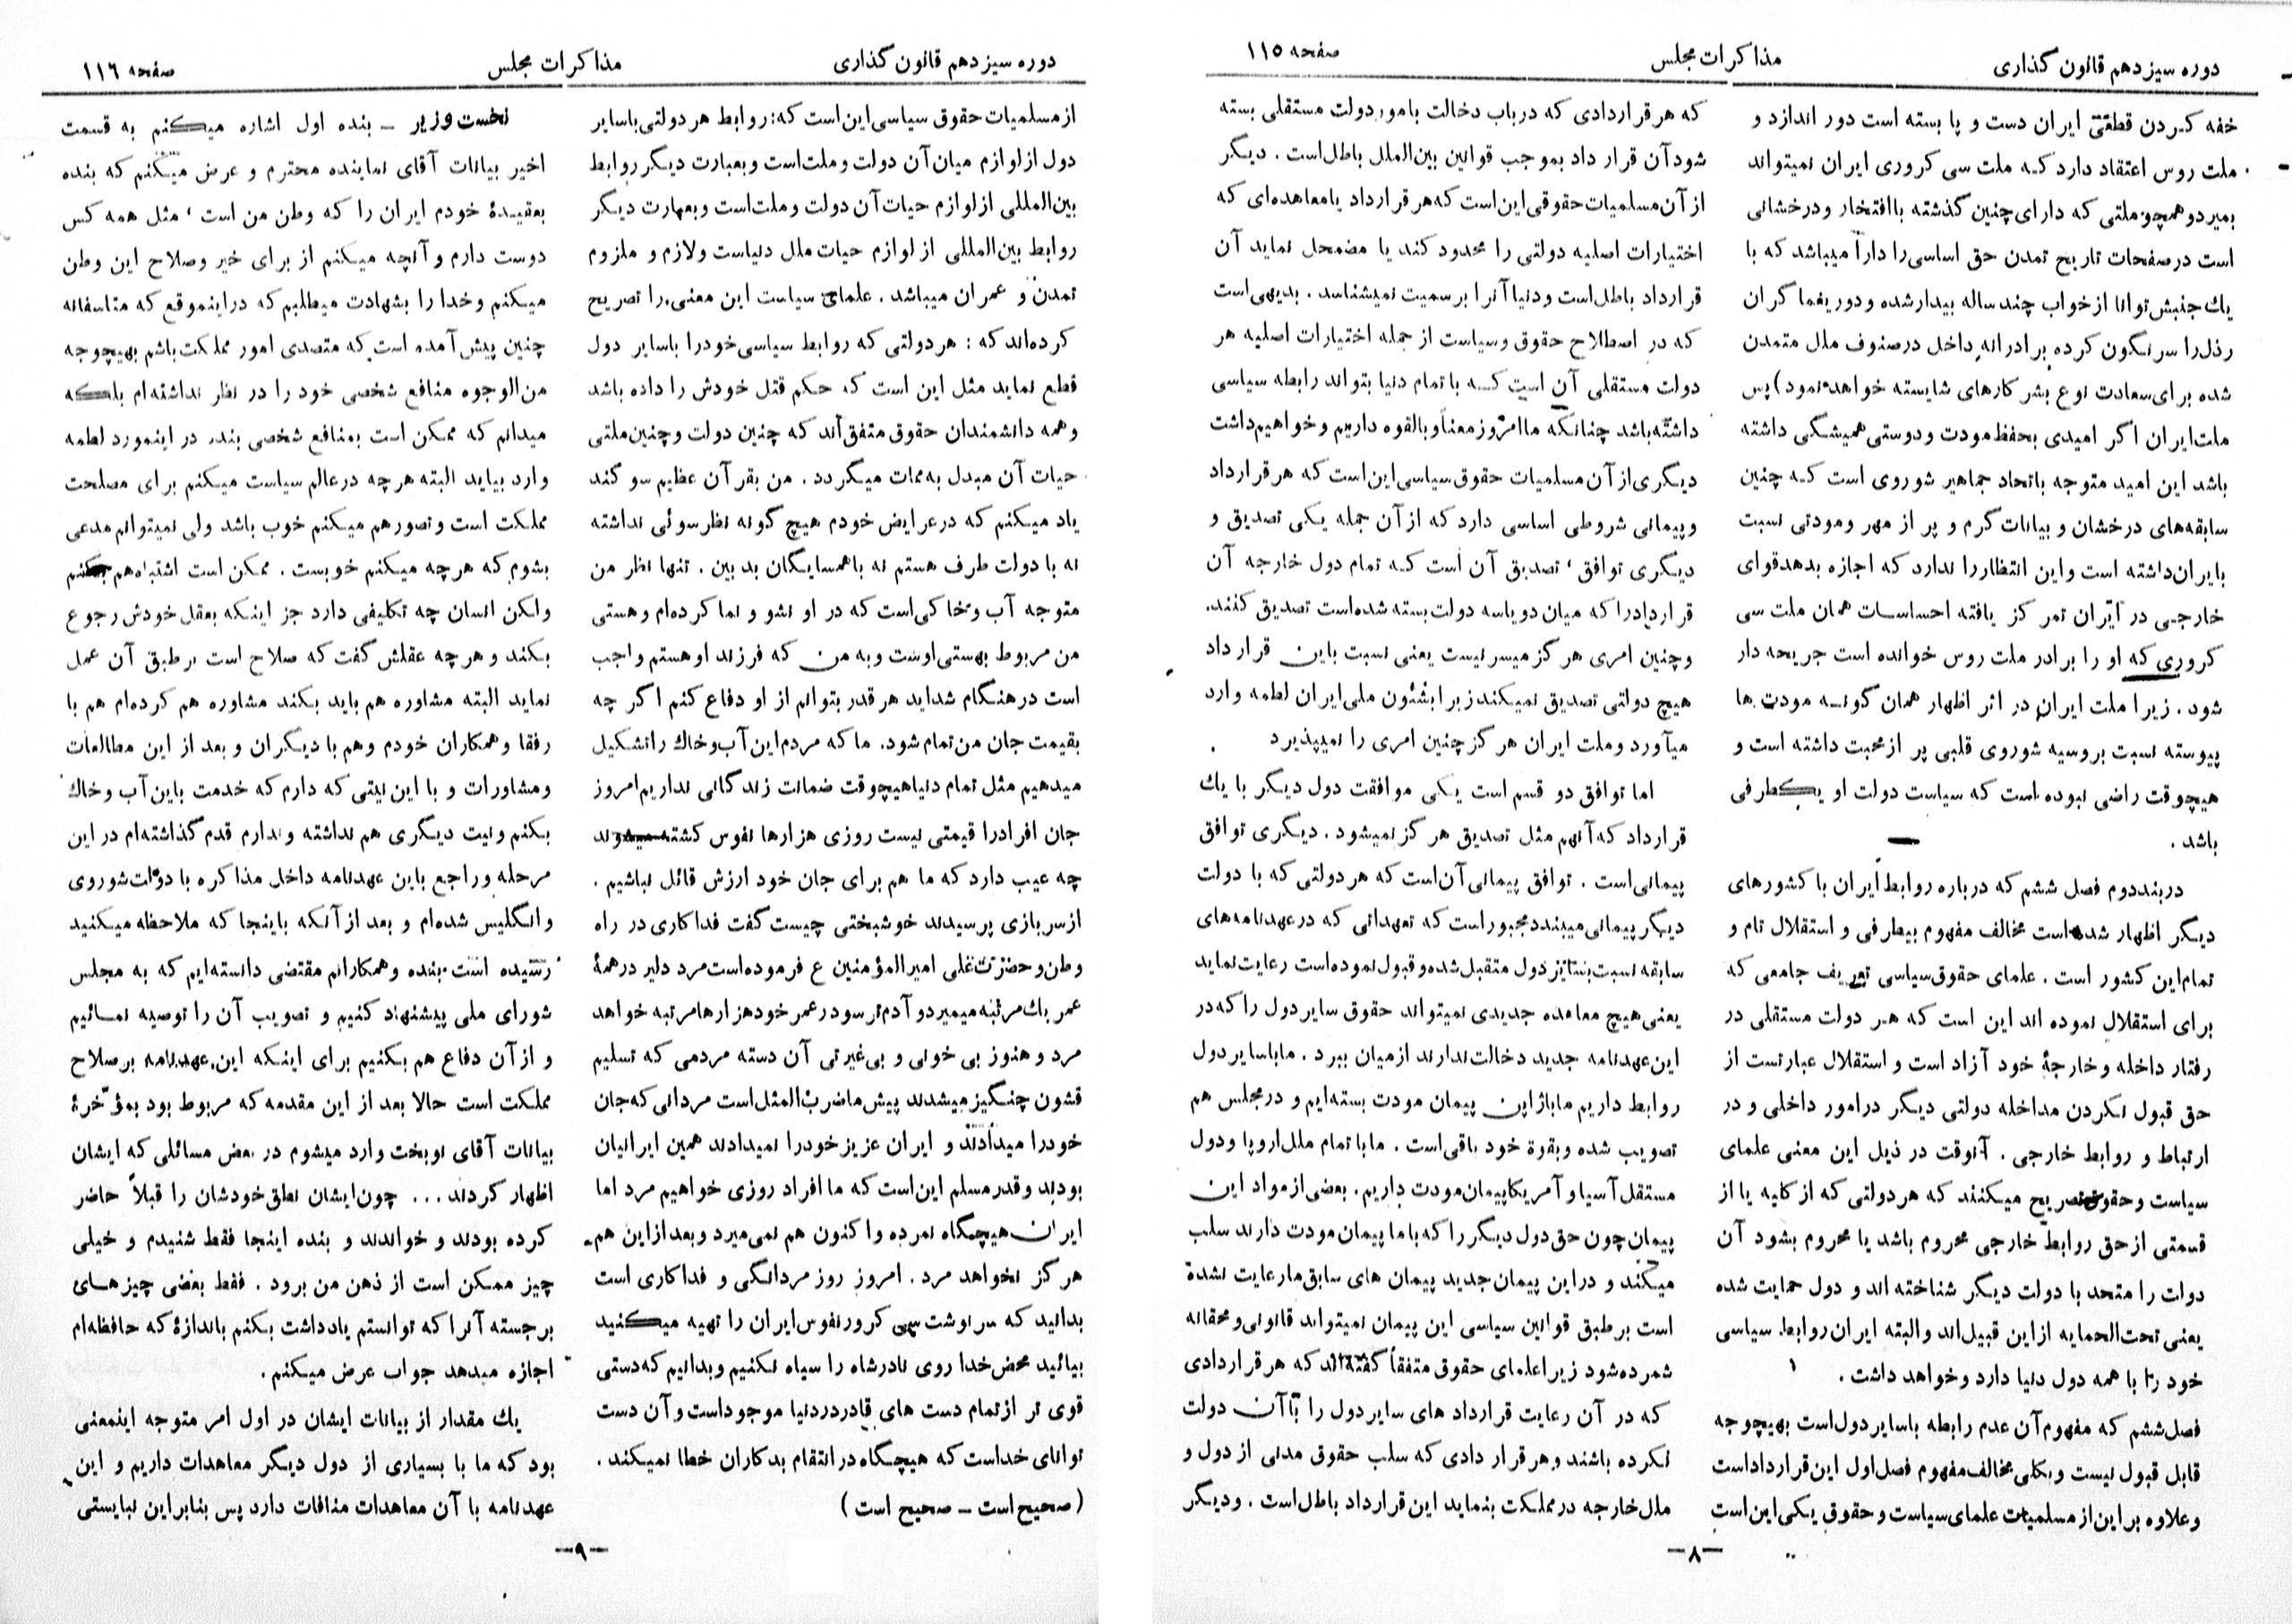 دوره سیزدهم قانون گذاری
مذاکرات مجلس
صفحه ۱۱۵
خفه کردن قطعی ایران دست و پا بسته است دور اندازد و
ملت روس اعتقاد دارد که ملت سی کروری ایران نمیتواند
بمیرد و همچو ملتی که دارای چنین گذشته با افتخار و درخشانی
است در صفحات تاریخ تمدن حق اساسی را دارا میباشد که با
یک جنبش توانا از خواب چند ساله بیدار شده و دور یغماگران
رذل را سرنگون کرده برادرانه داخل در صنوف ملل متمدن
شده برای سعادت نوع بشر کارهای شایسته خواهد نمود) پس
ملت ایران اگر امیدی بحفظ مودت و دوستی همیشگی داشته
باشد این امید متوجه باتحاد جماهیر شوروی است که چنین
سابقه‌های درخشان و بیانات گرم و پر از مهر و مودتی نسبت
بایران داشته است و این انتظار را ندارد که اجازه بدهد قوای
خارجی در ایران تمرکز یافته احساسات همان ملت سی
کروری که او را برادر ملت روس خوانده است جریحه دار
شود. زیرا ملت ایران در اثر اظهار همان گونه مودت ها
پیوسته نسبت بروسیه شوروی قلبی پر از محبت داشته است و
هیچوقت راضی نبوده است که سیاست دولت او یکطرفی
باشد.
در بند دوم فصل ششم که درباره روابط ایران با کشورهای
دیگر اظهار شده است مخالف مفهوم بیطرفی و استقلال تام و
تمام این کشور است. علمای حقوق سیاسی تعریف جامعی که
برای استقلال نموده اند این است که هر دولت مستقلی در
رفتار داخله و خارجهٔ خود آزاد است و استقلال عبارتست از
حق قبول نکردن مداخله دولتی دیگر در امور داخلی و در
ارتباط و روابط خارجی. آنوقت در ذیل این معنی علمای
سیاست و حقوق تصریح میکنند که هر دولتی که از کلیه یا از
قسمتی از حق روابط خارجی محروم باشد یا محروم بشود آن
دولت را متحد با دولت دیگر شناخته اند و دول حمایت شده
یعنی تحت‌الحمایه از این قبیل‌اند والبته ایران روابط سیاسی
خود را با همه دول دنیا دارد و خواهد داشت.
فصل ششم که مفهوم آن عدم رابطه با سایر دول است بهیچوجه
قابل قبول نیست و بکلی مخالف مفهوم فصل اول این قرارداد است
و علاوه بر این از مسلمیات علمای سیاست و حقوق یکی این است
که هر قراردادی که در باب دخالت بامور دولت مستقلی بسته
شود آن قرار داد بموجب قوانین بین‌الملل باطل است. دیگر
از آن مسلمیات حقوقی این است که هر قرارداد یا معاهده‌ای که
اختیارات اصلیه دولتی را محدود کند یا مضمحل نماید آن
قرارداد باطل است و دنیا آنرا برسمیت نمیشناسد. بدیهی است
که در اصطلاح حقوق و سیاست از جمله اختیارات اصلیه هر
دولت مستقلی آن است که با تمام دنیا بتواند رابطه سیاسی
داشته باشد چنانکه ما امروز معناً و بالقوه داریم و خواهیم داشت
دیگری از آن مسلمیات حقوق سیاسی این است که هر قرارداد
و پیمانی شروطی اساسی دارد که از آن جمله یکی تصدیق و
دیگری توافق، تصدیق آن است که تمام دول خارجه آن
قرارداد را که میان دو یا سه دولت بسته شده است تصدیق کنند.
و چنین امری هرگز میسر نیست یعنی نسبت باین قرارداد
هیچ دولتی تصدیق نمیکند زیرا بشئون ملی ایران لطمه وارد
میآورد و ملت ایران هرگز چنین امری را نمیپذیرد
اما توافق دو قسم است یکی موافقت دول دیگر با یک
قرارداد که آنهم مثل تصدیق هرگز نمیشود. دیگری توافق
پیمانی است. توافق پیمانی آن است که هر دولتی که با دولت
دیگر پیمانی میبندد مجبور است که تعهداتی که در عهدنامه‌های
سابقه نسبت بسایر دول متقبل شده و قبول نموده است رعایت نماید
یعنی هیچ معاهده جدیدی نمیتواند حقوق سایر دول را که در
این عهدنامه جدید دخالت ندارند از میان ببرد. ما با سایر دول
روابط داریم ما با ژاپن پیمان مودت بسته‌ایم و در مجلس هم
تصویب شده و بقوهٔ خود باقی است. ما با تمام ملل اروپا و دول
مستقل آسیا و آمریکا پیمان مودت داریم. بعضی از مواد این
پیمان چون حق دول دیگر را که با ما پیمان مودت دارند سلب
میکند و در این پیمان جدید پیمان های سابق ما رعایت نشده
است بر طبق قوانین سیاسی این پیمان نمیتواند قانونی و محقانه
شمرده شود زیرا علمای حقوق متفقاً گفته‌اند که هر قراردادی
که در آن رعایت قرارداد های سایر دول را با آن دولت
نکرده باشند و هر قرار دادی که سلب حقوق مدنی از دول و
ملل خارجه در مملکت بنماید این قرارداد باطل است. و دیگر
ـ۸ـ
دوره سیزدهم قانون گذاری
مذاکرات مجلس
صفحه ۱۱۶
از مسلمیات حقوق سیاسی این است که: روابط هر دولتی با سایر
دول از لوازم میان آن دولت و ملت است و بعبارت دیگر روابط
بین‌المللی از لوازم حیات آن دولت و ملت است و بعبارت دیگر
روابط بین‌المللی از لوازم حیات ملل دنیاست و لازم و ملزوم
تمدن و عمران میباشد. علمای سیاست این معنی را تصریح
کرده‌اند که: هر دولتی که روابط سیاسی خود را با سایر دول
قطع نماید مثل این است که حکم قتل خودش را داده باشد
و همه دانشمندان حقوق متفق‌اند که چنین دولت و چنین ملتی
حیات آن مبدل به ممات میگردد. من بقرآن عظیم سوگند
یاد میکنم که در عرایض خودم هیچ گونه نظر سوئی نداشته
نه با دولت طرف هستم نه با همسایگان بد بین. تنها نظر من
متوجه آب و خاکی است که در او نشو و نما کرده‌ام و هستی
من مربوط بهستی اوست و به من که فرزند او هستم واجب
است در هنگام شداید هر قدر بتوانم از او دفاع کنم اگر چه
بقیمت جان من تمام شود. ما که مردم این آب و خاک را تشکیل
میدهیم مثل تمام دنیا هیچوقت ضمانت زندگانی نداریم امروز
جان افراد را قیمتی نیست روزی هزارها نفوس کشته میشوند
چه عیب دارد که ما هم برای جان خود ارزش قائل نباشیم.
از سربازی پرسیدند خوشبختی چیست گفت فداکاری در راه
وطن و حضرت علی امیرالمؤمنین ع فرموده است مرد دلیر در همهٔ
عمر یک مرتبه میمیرد و آدم ترسو در عمر خود هزارها مرتبه خواهد
مرد و هنوز بی خونی و بی‌غیرتی آن دسته مردمی که تسلیم
قشون چنگیز میشدند پیش ما ضرب‌المثل است مردانی که جان
خود را میدادند و ایران عزیز خود را نمیدادند همین ایرانیان
بودند و قدر مسلم این است که ما افراد روزی خواهیم مرد اما
ایران هیچگاه نمرده و اکنون هم نمی‌میرد و بعد از این هم
هرگز نخواهد مرد. امروز روز مردانگی و فداکاری است
بدانید که سرنوشت سی کرور نفوس ایران را تهیه میکنید
بیائید محض خدا روی نادرشاه را سیاه نکنیم و بدانیم که دستی
قوی تر از تمام دست های قادر در دنیا موجود است و آن دست
توانای خداست که هیچگاه در انتقام بدکاران خطا نمیکند.
(صحیح است ـ صحیح است)
نخست وزیر ـ بنده اول اشاره میکنم به قسمت
اخیر بیانات آقای نماینده محترم و عرض میکنم که بنده
بعقیدهٔ خودم ایران را که وطن من است، مثل همه کس
دوست دارم و آنچه میکنم از برای خیر و صلاح این وطن
میکنم و خدا را بشهادت میطلبم که در اینموقع که متاسفانه
چنین پیش آمده است که متصدی امور مملکت باشم بهیچوجه
من‌الوجوه منافع شخصی خود را در نظر نداشته‌ام بلکه
میدانم که ممکن است بمنافع شخصی بنده در اینمورد لطمه
وارد بیاید البته هر چه در عالم سیاست میکنم برای مصلحت
مملکت است و تصور هم میکنم خوب باشد ولی نمیتوانم مدعی
بشوم که هر چه میکنم خوبست. ممکن است اشتباه هم بکنم
ولکن انسان چه تکلیفی دارد جز اینکه بعقل خودش رجوع
بکند و هر چه عقلش گفت که صلاح است بر طبق آن عمل
نماید البته مشاوره هم باید بکند مشاوره هم کرده‌ام هم با
رفقا و همکاران خودم و هم با دیگران و بعد از این مطالعات
و مشاورات و با این نیتی که دارم که خدمت باین آب و خاک
بکنم و نیت دیگری هم نداشته و ندارم قدم گذاشته‌ام در این
مرحله و راجع باین عهدنامه داخل مذاکره با دولت شوروی
و انگلیس شده‌ام و بعد از آنکه باینجا که ملاحظه میکنید
رسیده است بنده و همکارانم مقتضی دانسته‌ایم که به مجلس
شورای ملی پیشنهاد کنیم و تصویب آن را توصیه نمائیم
و از آن دفاع هم بکنیم برای اینکه این عهدنامه بر صلاح
مملکت است حالا بعد از این مقدمه که مربوط بود بمؤخرهٔ
بیانات آقای نوبخت وارد میشوم در بعض مسائلی که ایشان
اظهار کردند... چون ایشان نطق خودشان را قبلاً حاضر
کرده بودند و خواندند و بنده اینجا فقط شنیدم و خیلی
چیز ممکن است از ذهن من برود. فقط بعضی چیزهای
برجسته آنرا که توانستم یادداشت بکنم باندازهٔ که حافظه‌ام
اجازه میدهد جواب عرض میکنم.
یک مقدار از بیانات ایشان در اول امر متوجه اینمعنی
بود که ما با بسیاری از دول دیگر معاهدات داریم و این
عهدنامه با آن معاهدات منافات دارد پس بنابراین نبایستی
ـ۹ـ